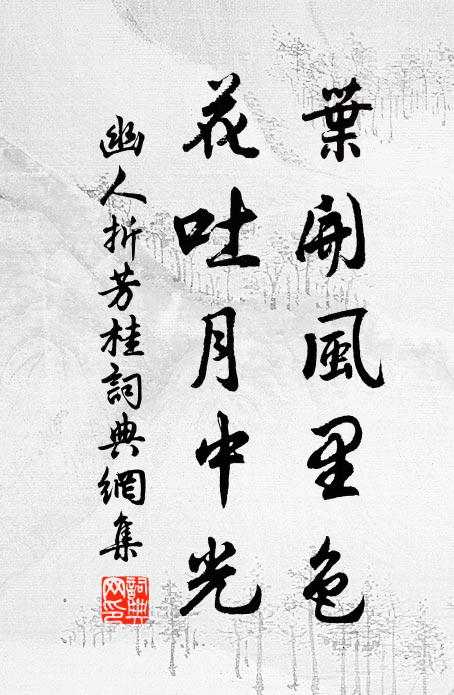 葉開風里色
花吐月中光
幽人折芳桂詞典網集
詞典网印